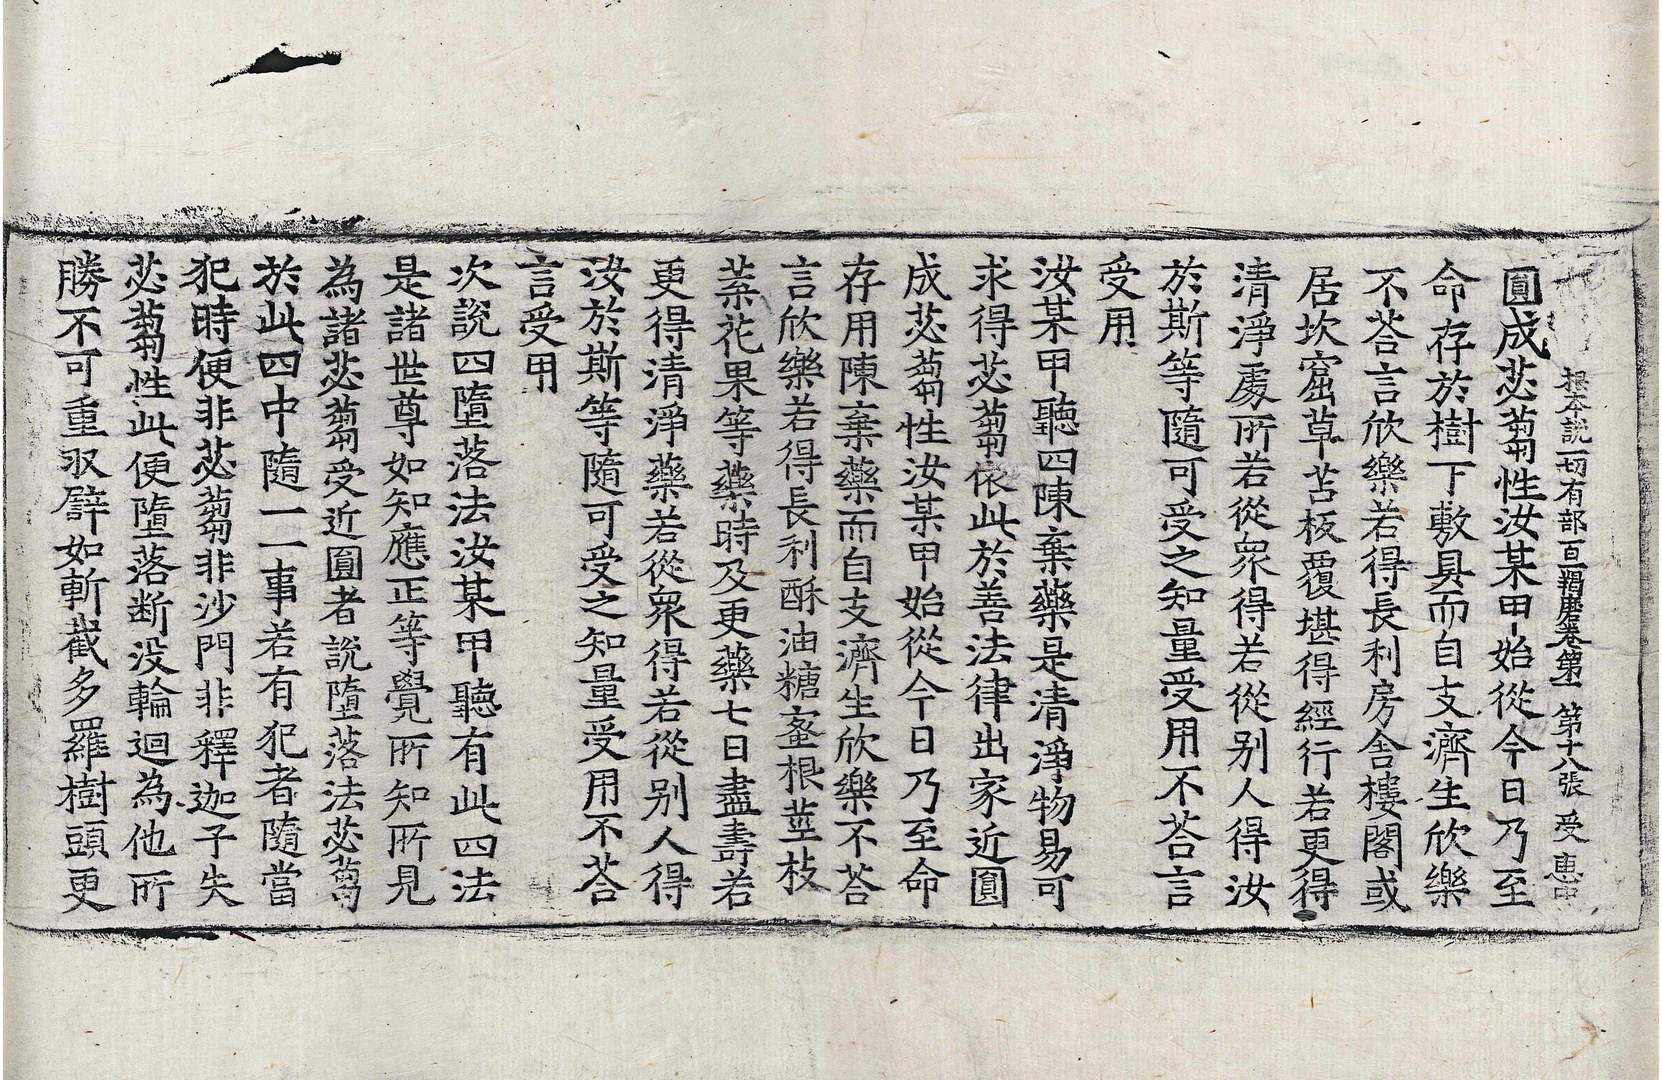 根本說一切有部百一羯磨卷第一 第十八張 受 惠中
圓成苾蒭性汝某甲始從今日乃至
命存於樹下敷具而自支濟生欣樂
不荅言欣樂若得長利房舍樓閣或
居坎窟草苫板覆堪得經行若更得
清淨處所若從衆得若從別人得汝
於斯等隨可受之知量受用不荅言
受用
汝某甲聽四陳棄藥是清淨物易可
求得苾蒭依此於善法律出家近圓
成苾蒭性汝某甲始從今日乃至命
存用陳棄藥而自支濟生欣樂不荅
言欣樂若得長利酥油糖蜜根莖枝
葉花果等藥時及更藥七日盡壽若
更得清淨藥若從衆得若從別人得
汝於斯等隨可受之知量受用不荅
言受用
次說四墮落法汝某甲聽有此四法
是諸世尊如知應正等覺所知所見
為諸苾蒭受近圓者說墮落法苾蒭
於此四中隨一一事若有犯者隨當
犯時便非苾蒭非沙門非釋迦子失
苾蒭性此便墮落断没輪迴為他所
勝不可重収譬如斬截多羅樹頭更